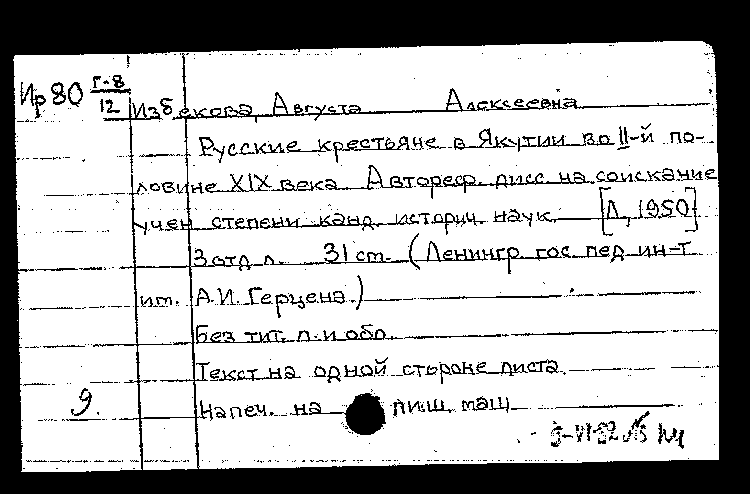 Ир 80 Г-8/12
Избекова, Августа Алексеевна
Русские крестьяне в Якутии во II-й по-
ловине XIX века. Автореф. дисс. на соискание
учен. степени канд. историч. наук. [Л., 1950]
3 отд. л. 31 ст. (Ленингр. гос. пед. ин-т
им. А. И. Герцена.)
Без тит. л. и обл.
Текст на одной стороне листа.
9. Напеч. на пиш. маш.